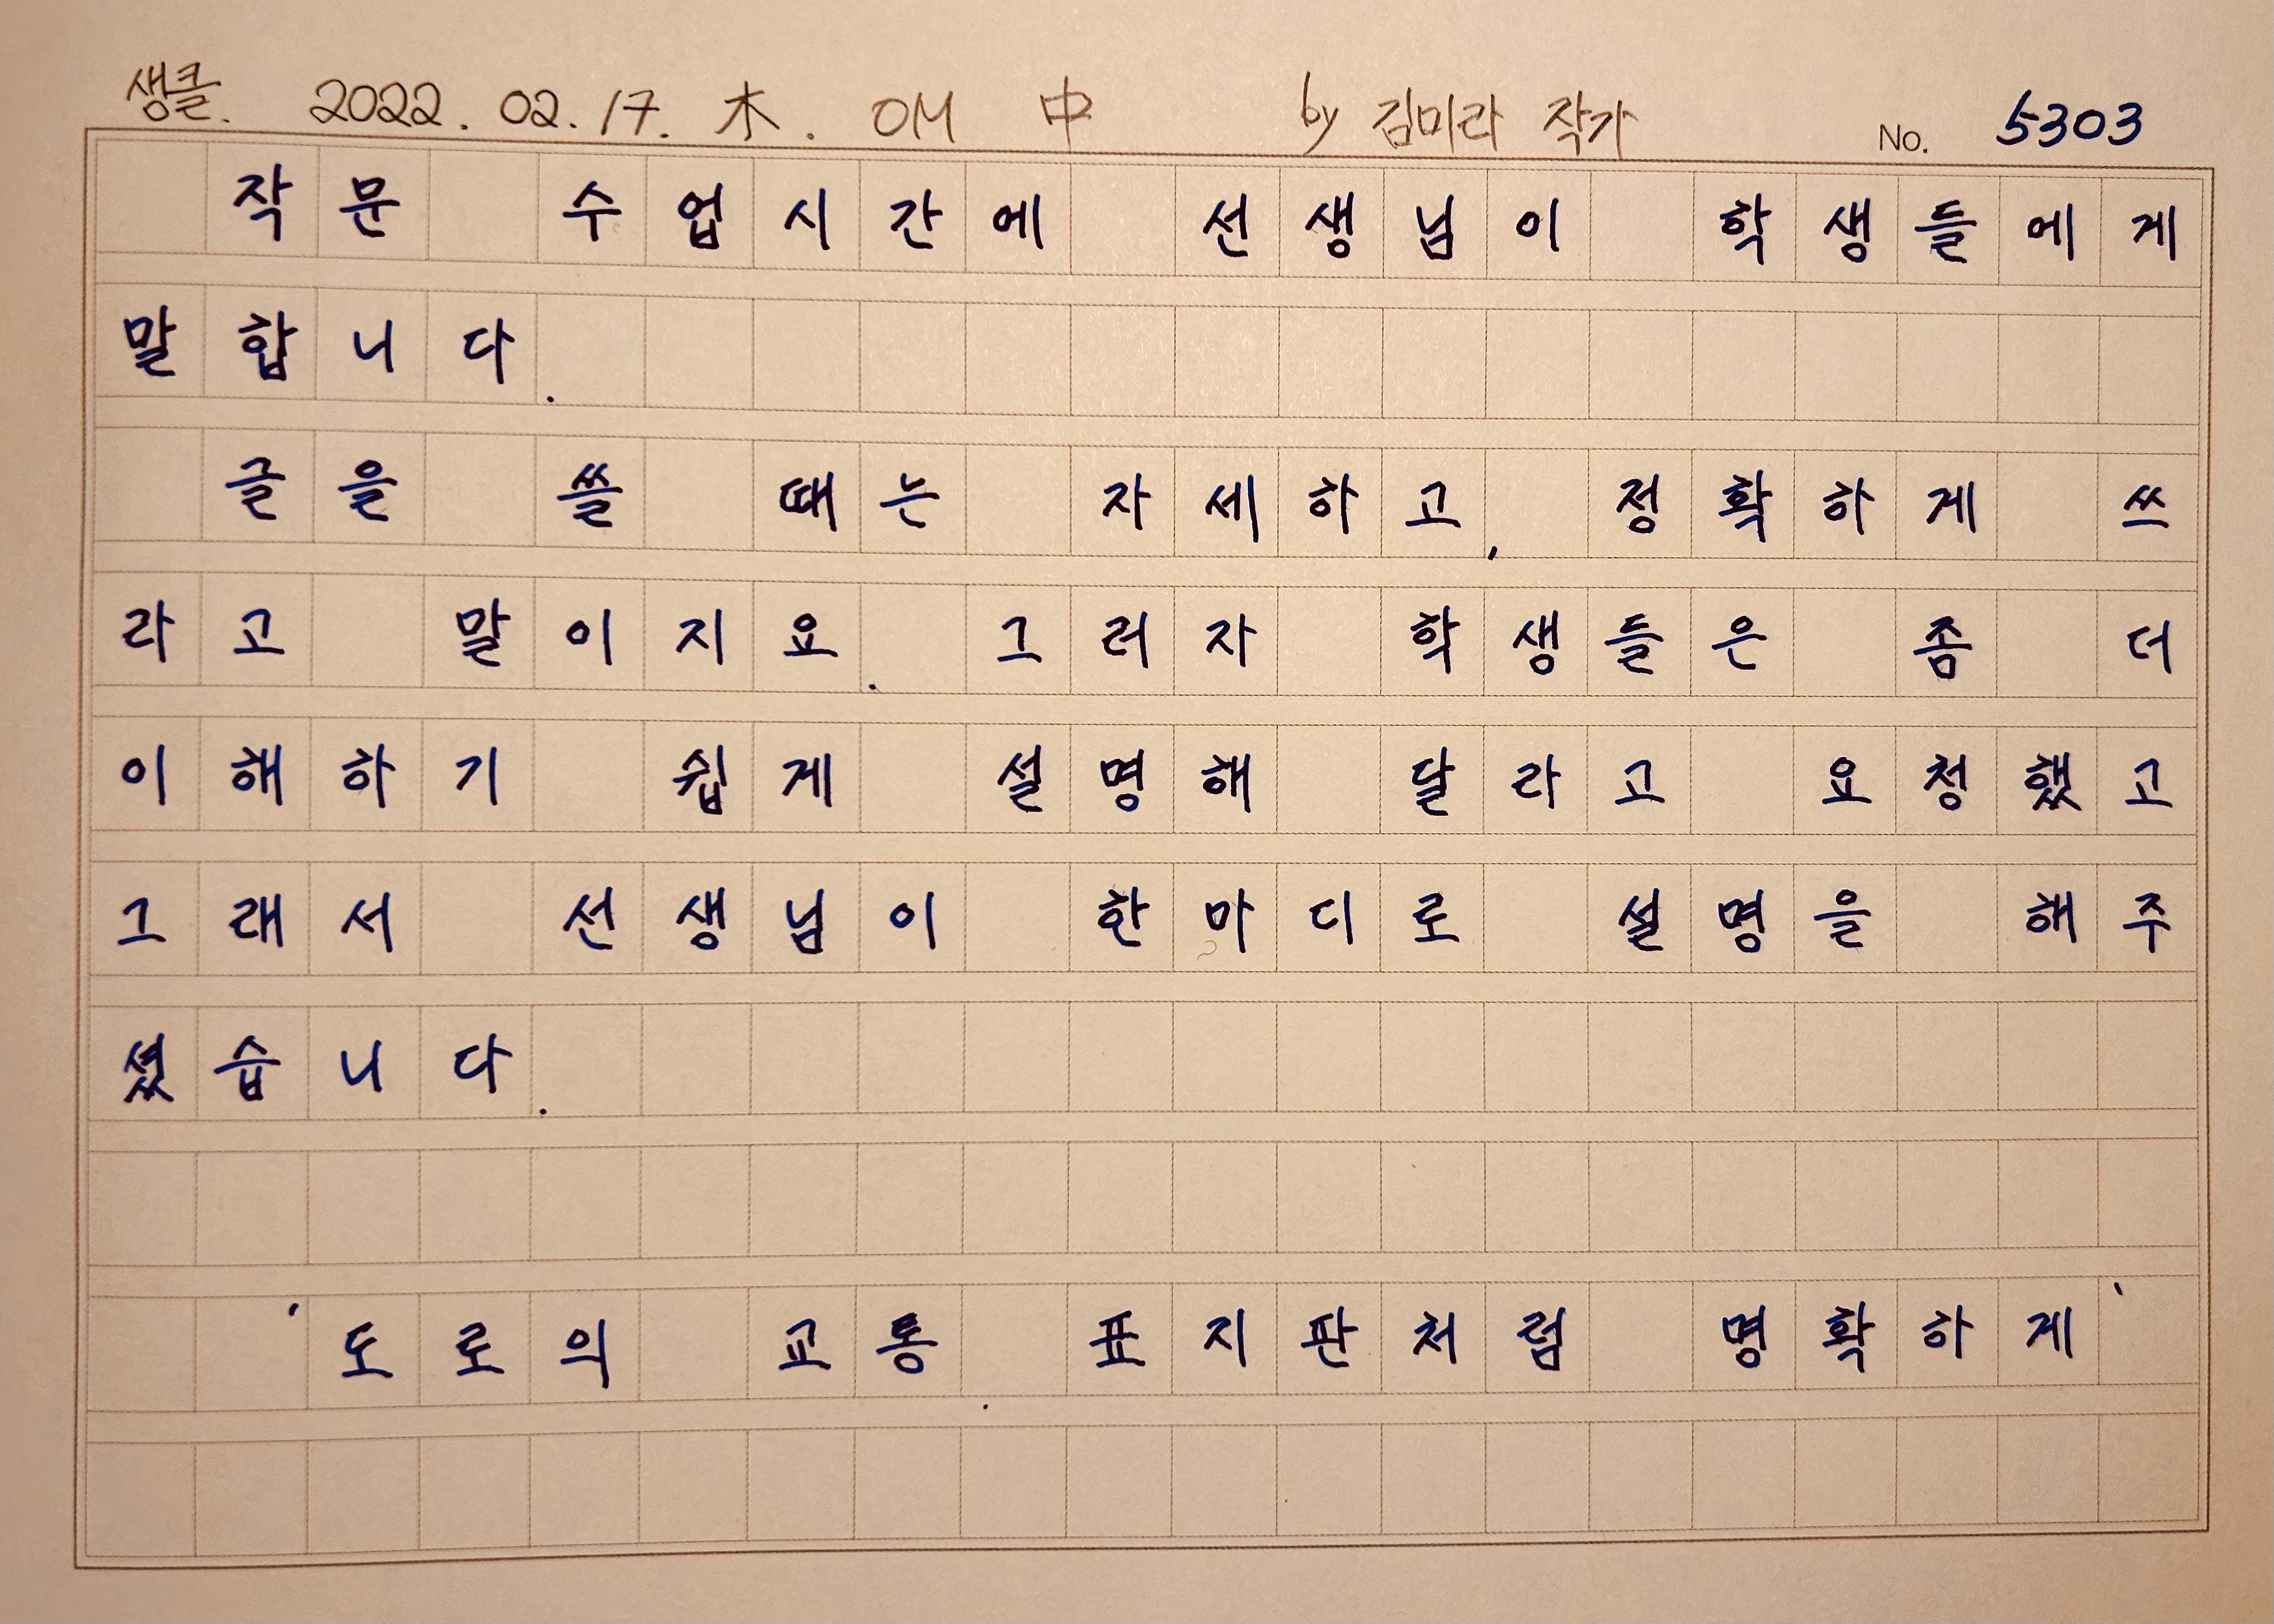 생클. 2022. 02. 17. 木. OM 中 by 김미라 작가 No. 5303
작문 수업시간에 선생님이 학생들에게
말합니다.
글을 쓸 때는 자세하고, 정확하게 쓰
라고 말이지요. 그러자 학생들은 좀 더
이해하기 쉽게 설명해 달라고 요청했고
그래서 선생님이 한마디로 설명을 해주
셨습니다.
'도로의 교통 표지판처럼 명확하게'